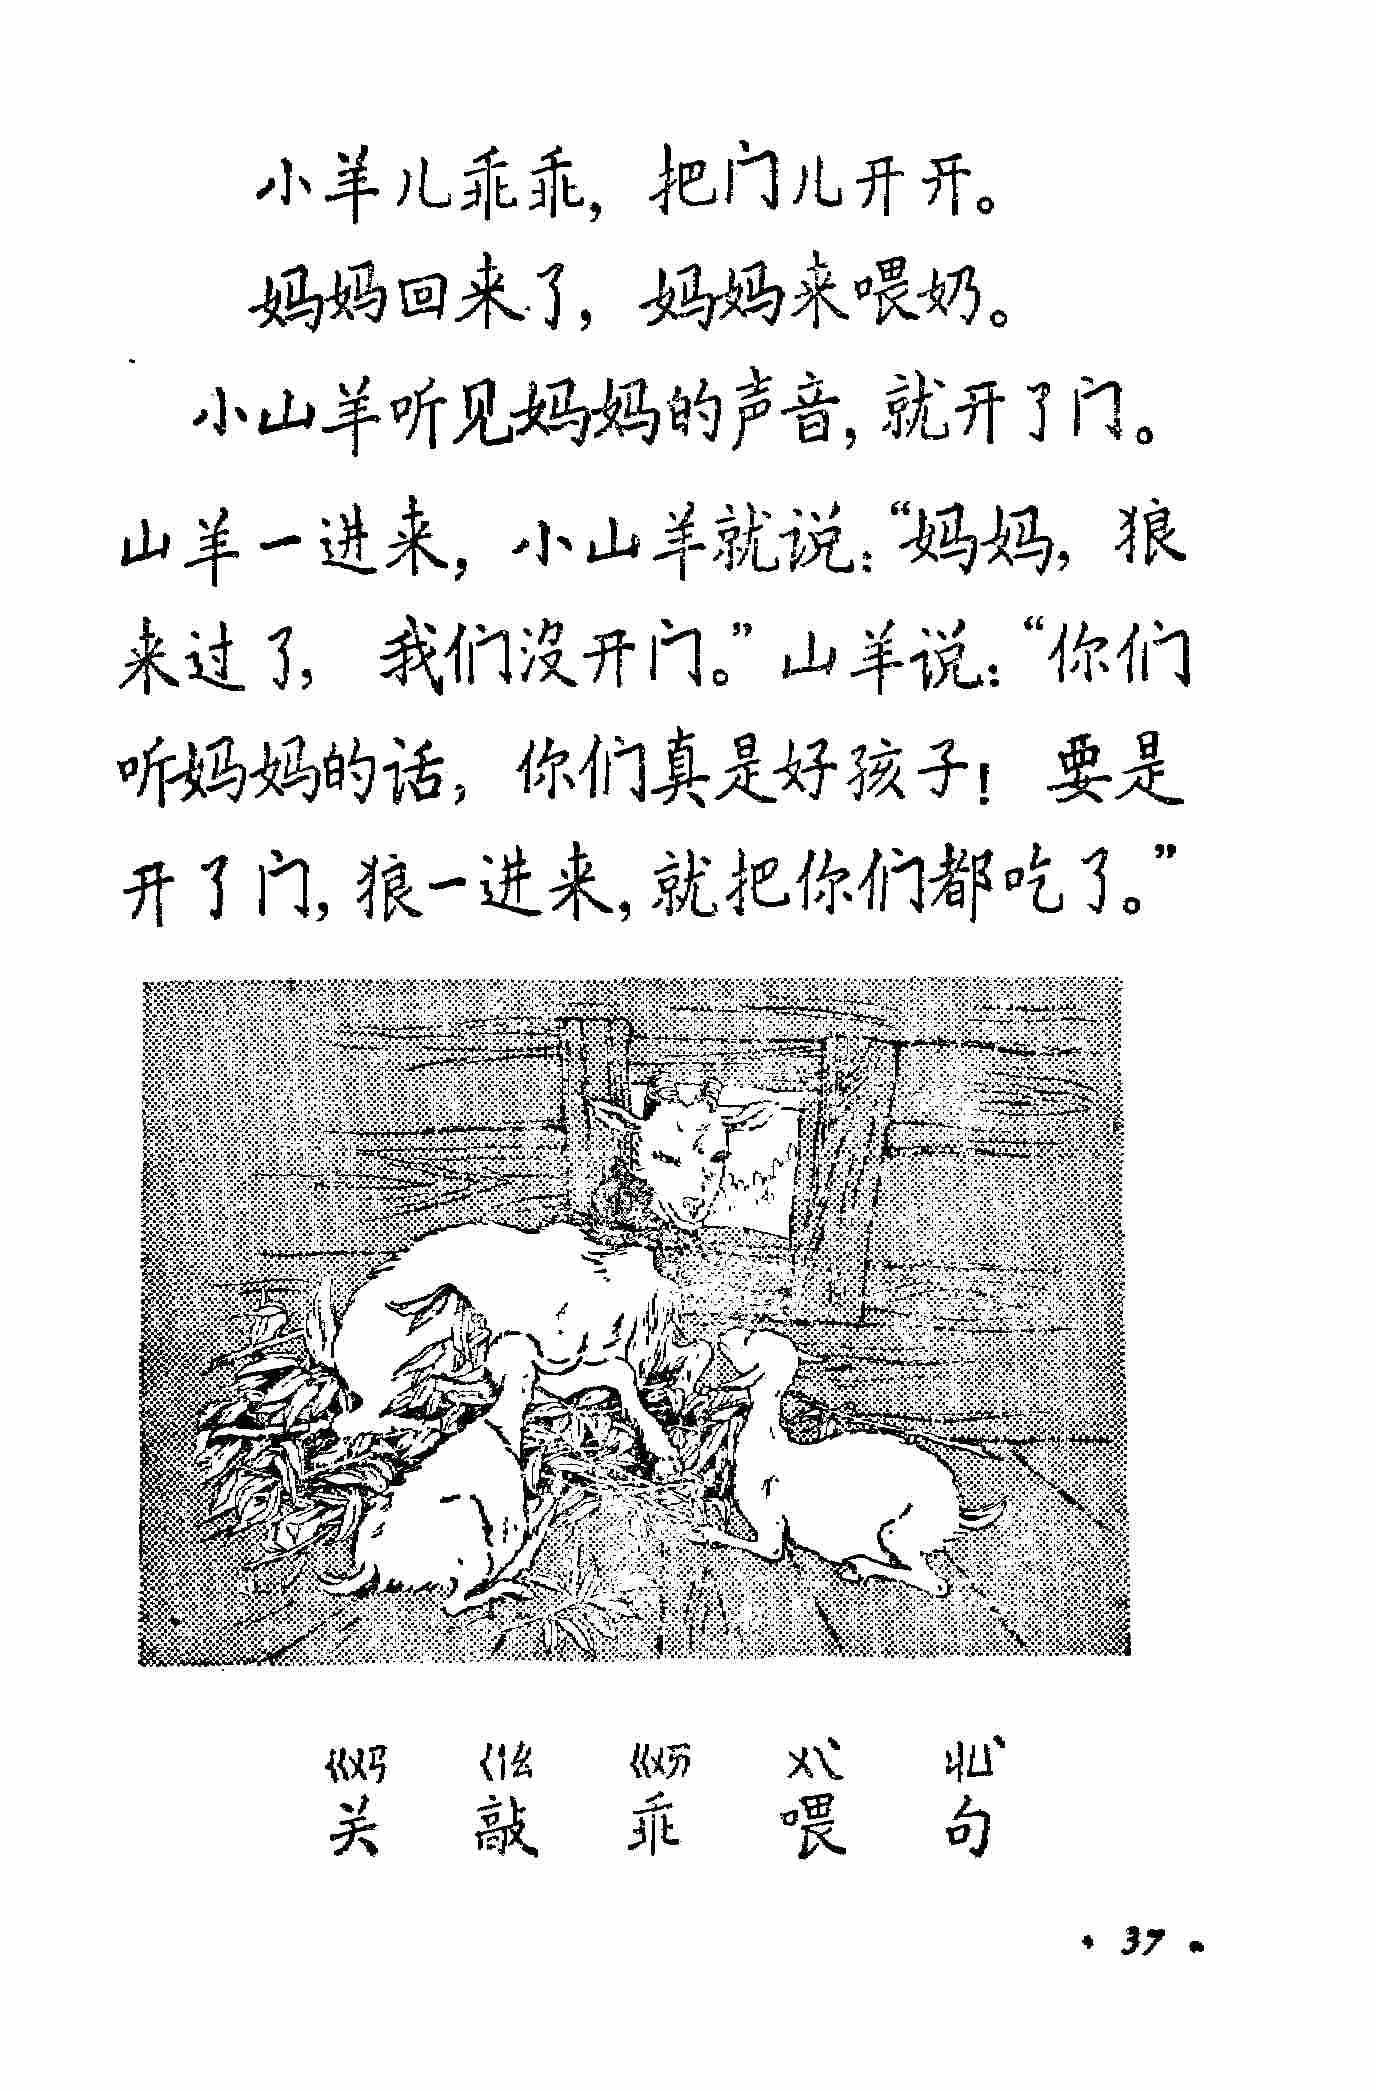 小羊儿乖乖，把门儿开开。
妈妈回来了，妈妈来喂奶。
小山羊听见妈妈的声音，就开了门。
山羊一进来，小山羊就说：“妈妈，狼
来过了，我们没开门。”山羊说：“你们
听妈妈的话，你们真是好孩子！要是
开了门，狼一进来，就把你们都吃了。”
ㄍㄨㄢ ㄑㄧㄠ ㄍㄨㄞ ㄨㄟˋ ㄐㄩˋ
关 敲 乖 喂 句
· 37 ·